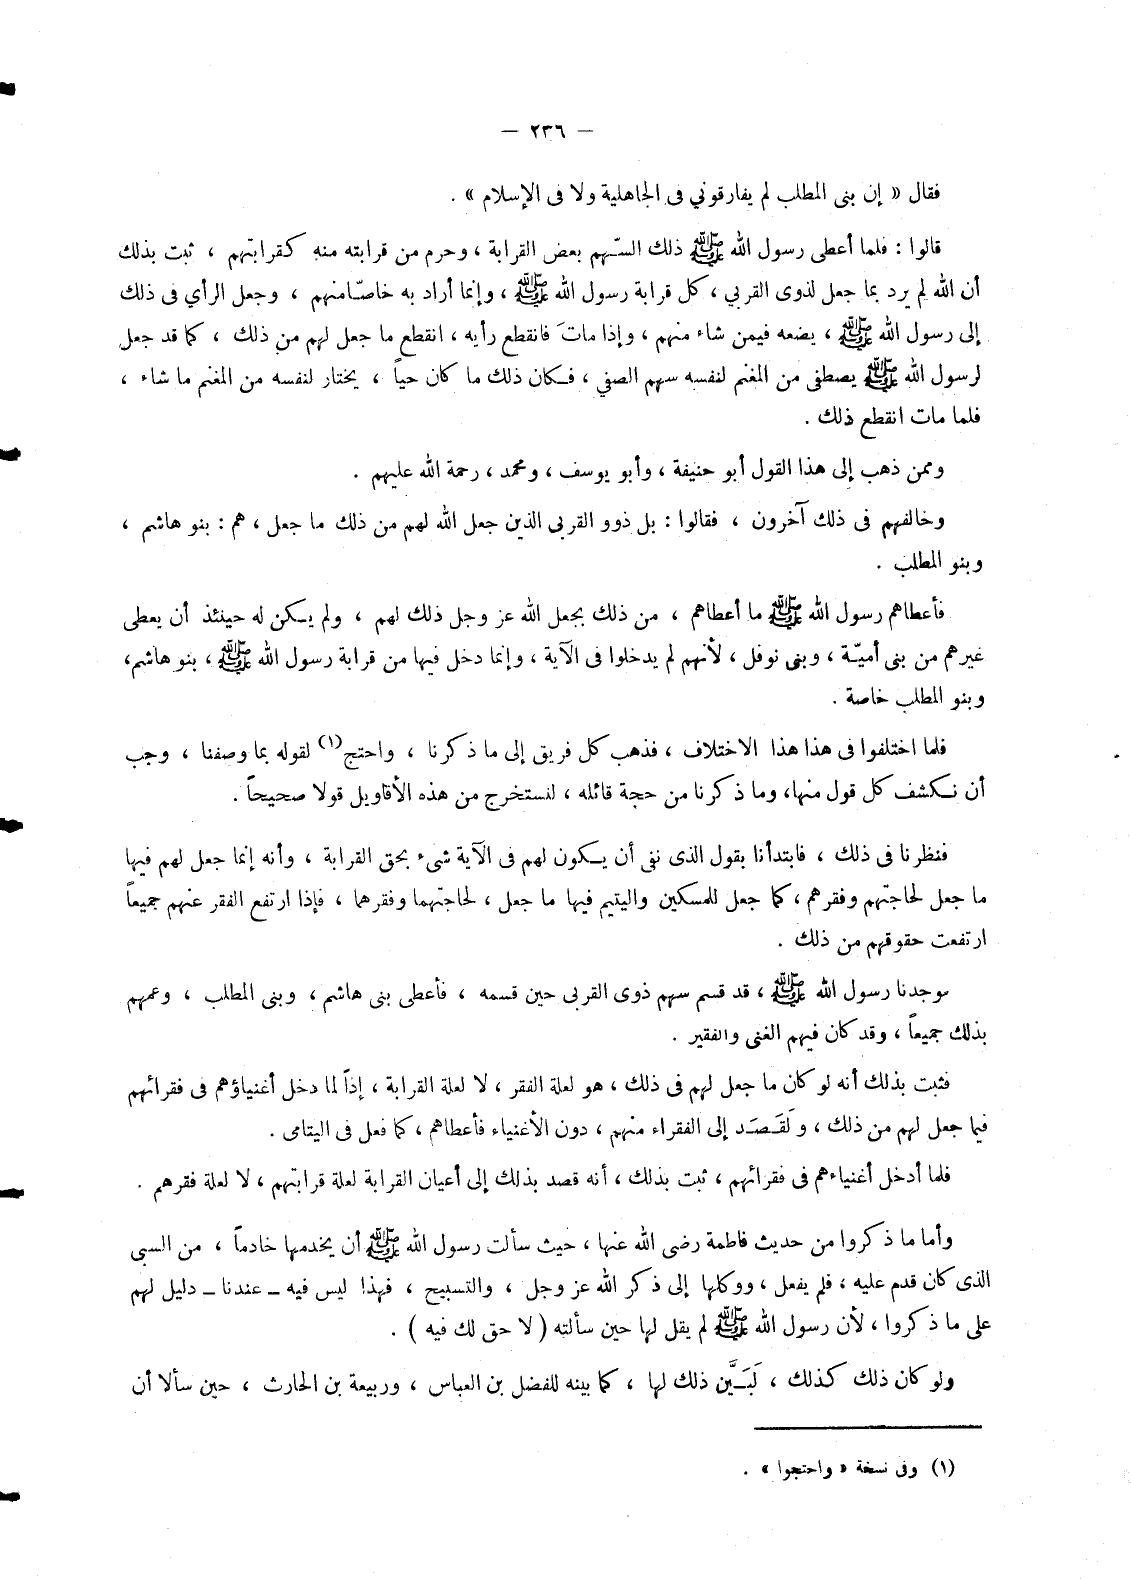 — ٢٣٦ —
فقال « إن بنى المطلب لم يفارقوني فى الجاهلية ولا فى الإسلام » .
قالوا : فلما أعطى رسول الله ﷺ ذلك السّهم بعض القرابة ، وحرم من قرابته منه كقرابتهم ، ثبت بذلك
أن الله لم يرد بما جعل لذوى القربى ، كل قرابة رسول الله ﷺ ، وإنما أراد به خاصّا منهم ، وجعل الرأي فى ذلك
إلى رسول الله ﷺ ، يضعه فيمن شاء منهم ، وإذا ماتَ فانقطع رأيه ، انقطع ما جعل لهم من ذلك ، كما قد جعل
لرسول الله ﷺ يصطفى من المغنم لنفسه سهم الصفي ، فكان ذلك ما كان حياً ، يختار لنفسه من المغنم ما شاء ،
فلما مات انقطع ذلك .
وممن ذهب إلى هذا القول أبو حنيفة ، وأبو يوسف ، ومحمد ، رحمة الله عليهم .
وخالفهم فى ذلك آخرون ، فقالوا : بل ذوو القربى الذين جعل الله لهم من ذلك ما جعل ، هم : بنو هاشم ،
وبنو المطلب .
فأعطاهم رسول الله ﷺ ما أعطاهم ، من ذلك بجعل الله عز وجل ذلك لهم ، ولم يكن له حينئذ أن يعطى
غيرهم من بنى أميّة ، وبنى نوفل ، لأنهم لم يدخلوا فى الآية ، وإنما دخل فيها من قرابة رسول الله ﷺ ، بنو هاشم،
وبنو المطلب خاصة .
فلما اختلفوا فى هذا هذا الاختلاف ، فذهب كل فريق إلى ما ذكرنا ، واحتج(١) لقوله بما وصفنا ، وجب
أن نكشف كل قول منها، وما ذكرنا من حجة قائله ، لنستخرج من هذه الأقاويل قولا صحيحاً .
فنظرنا فى ذلك ، فابتدأنا بقول الذى نفى أن يكون لهم فى الآية شىء بحق القرابة ، وأنه إنما جعل لهم فيها
ما جعل لحاجتهم وفقرهم ، كما جعل للمسكين واليتيم فيها ما جعل ، لحاجتهما وفقرهما ، فإذا ارتفع الفقر عنهم جميعاً
ارتفعت حقوقهم من ذلك .
فوجدنا رسول الله ﷺ ، قد قسم سهم ذوى القربى حين قسمه ، فأعطى بنى هاشم ، وبنى المطلب ، وعمهم
بذلك جميعاً ، وقد كان فيهم الغنى والفقير .
فثبت بذلك أنه لو كان ما جعل لهم فى ذلك ، هو لعلة الفقر ، لا لعلة القرابة ، إذاً لما دخل أغنياؤهم فى فقرائهم
فيما جعل لهم من ذلك ، ولَقَصَد إلى الفقراء منهم ، دون الأغنياء فأعطاهم ، كما فعل فى اليتامى .
فلما أدخل أغنياءهم فى فقرائهم ، ثبت بذلك ، أنه قصد بذلك إلى أعيان القرابة لعلة قرابتهم ، لا لعلة فقرهم .
وأما ما ذكروا من حديث فاطمة رضى الله عنها ، حيث سألت رسول الله ﷺ أن يخدمها خادماً ، من السبى
الذى كان قدم عليه ، فلم يفعل ، ووكلها إلى ذكر الله عز وجل ، والتسبيح ، فهذا ليس فيه – عندنا – دليل لهم
على ما ذكروا ، لأن رسول الله ﷺ لم يقل لها حين سألته ( لا حق لك فيه ) .
ولو كان ذلك كذلك ، لَبَيَّن ذلك لها ، كما بينه للفضل بن العباس ، وربيعة بن الحارث ، حين سألا أن
(١) وفى نسخة « واحتجوا » .